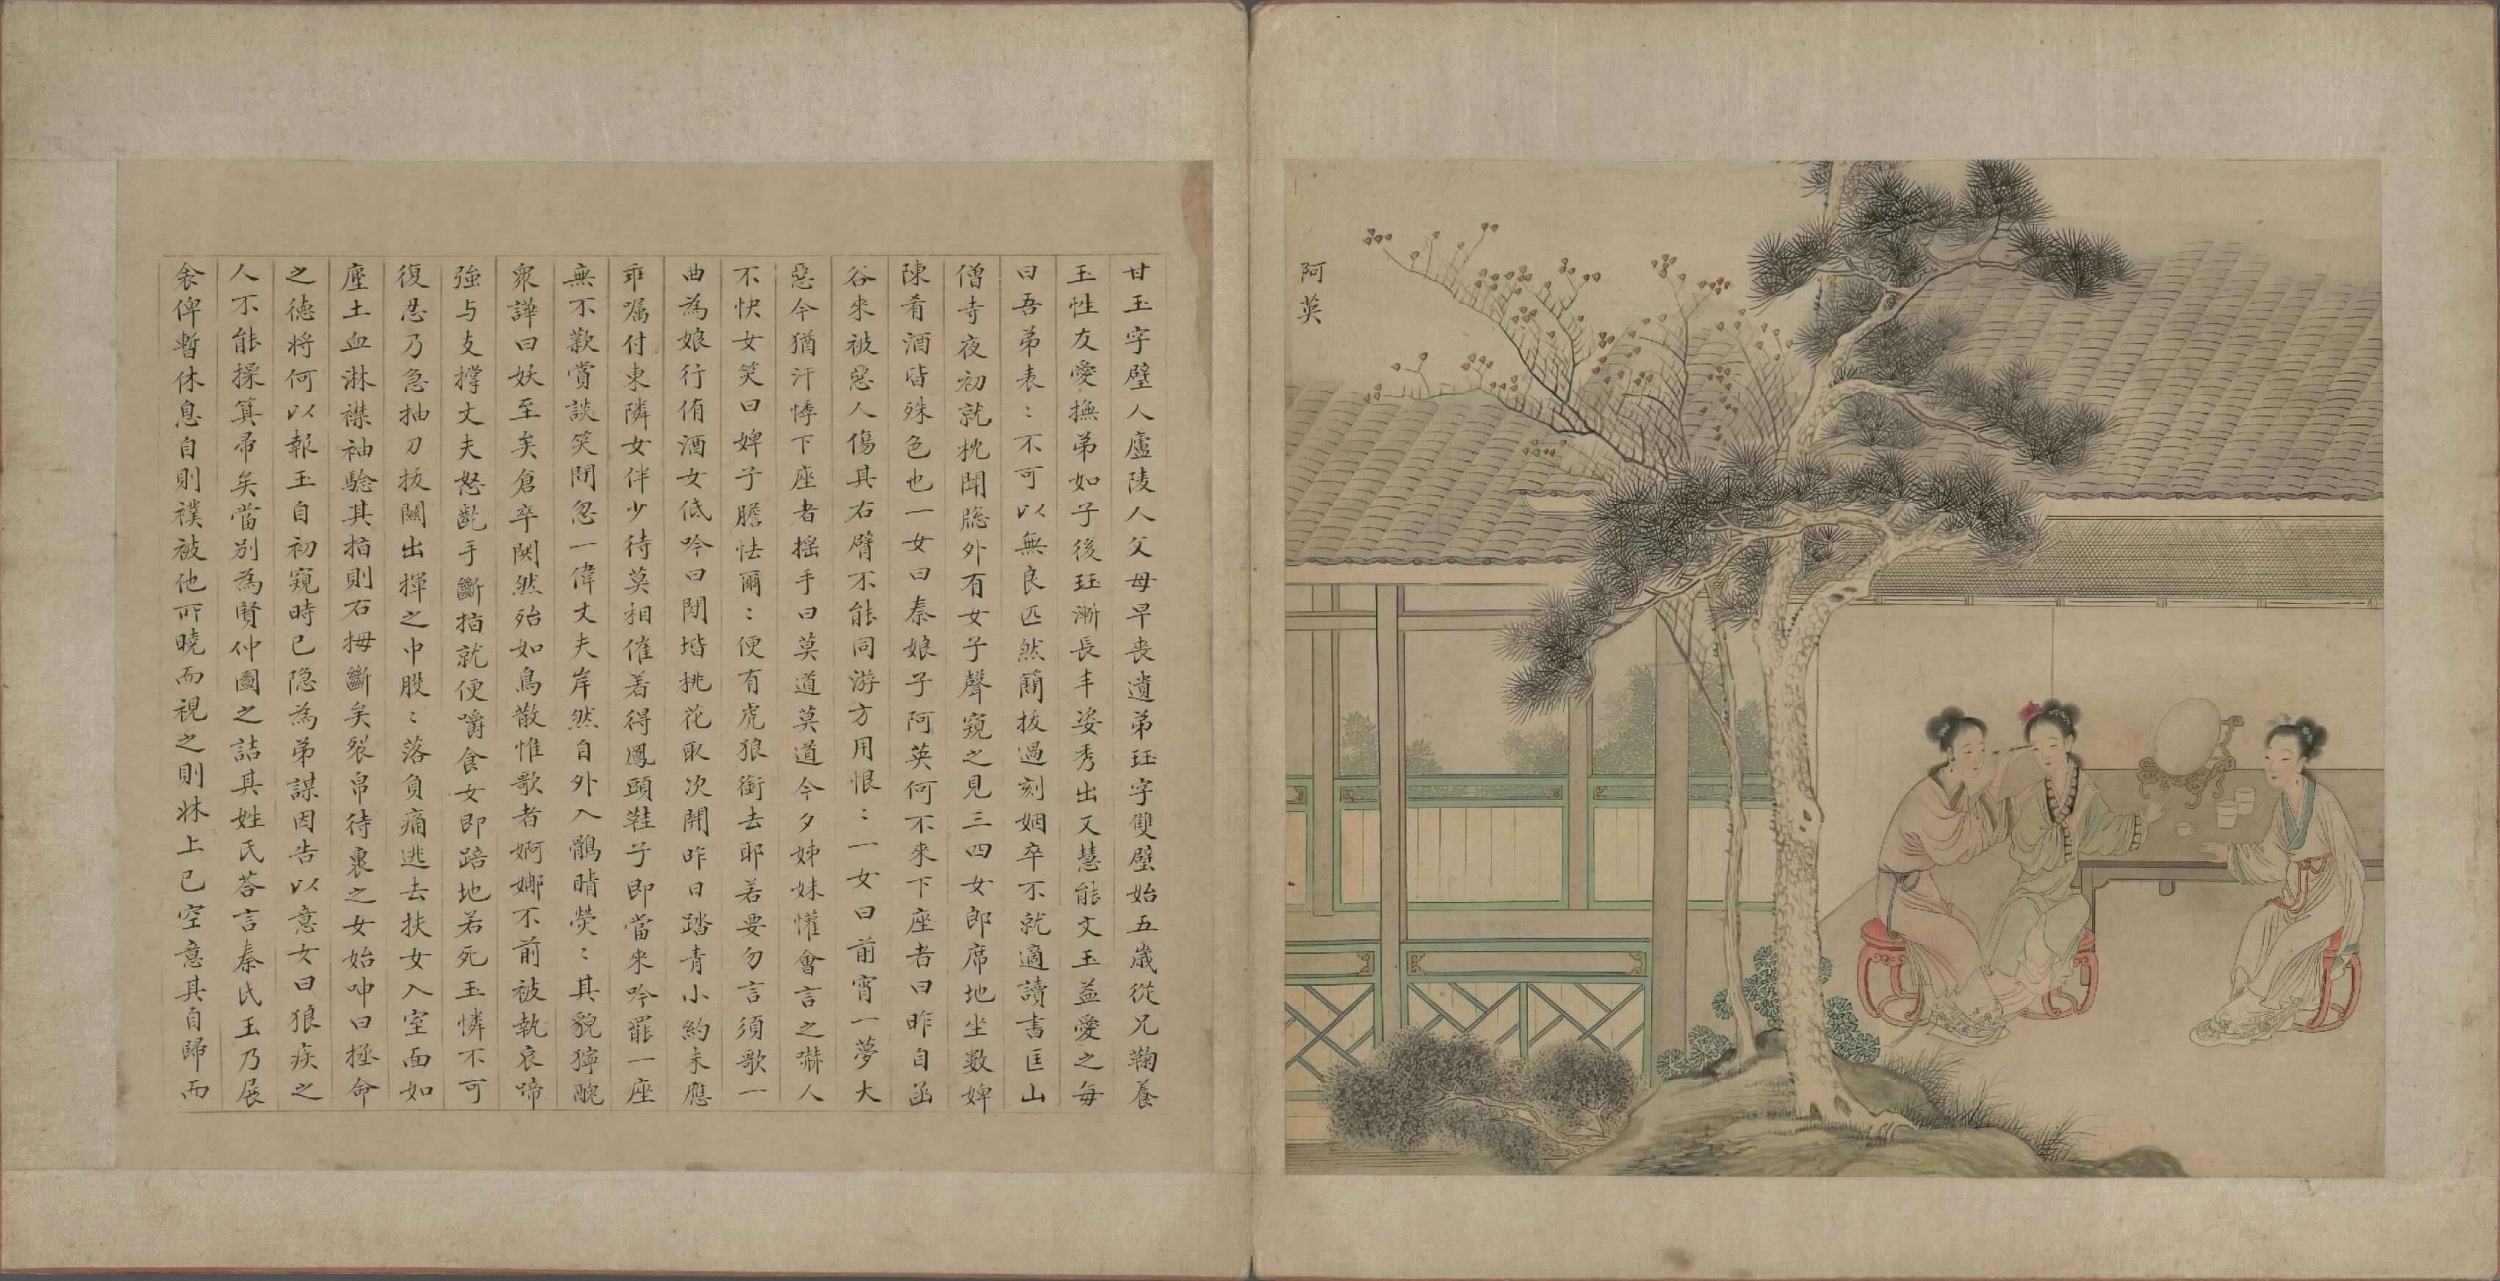 阿英
甘玉字璧人廬陵人父母早喪遺弟珏字雙璧始五歲從兄鞠養
玉性友愛撫弟如子後珏漸長丰姿秀出又慧能文玉益愛之每
曰吾弟表〻不可以無良匹然簡拔過刻姻卒不就適讀書匡山
僧寺夜初就枕聞牕外有女子聲窺之見三四女郎席地坐數婢
陳肴酒皆殊色也一女曰秦娘子阿英何不來下座者曰昨自函
谷來被惡人傷其右臂不能同游方用恨〻一女曰前宵一夢大
惡今猶汗悸下座者搖手曰莫道莫道今夕姊妹懽會言之嚇人
不快女笑曰婢子膽怯爾〻便有虎狼銜去耶若要勿言須歌一
曲為娘行侑酒女低吟曰閒堦桃花取次開昨日踏青小約未應
乖囑付東隣女伴少待莫相催着得鳳頭鞋子即當來吟罷一座
無不歎賞談笑間忽一偉丈夫岸然自外入鶻睛熒〻其貌獰醜
衆譁曰妖至矣倉卒鬨然殆如鳥散惟歌者婀娜不前被執哀啼
強与支撐丈夫怒齕手斷指就便嚼食女即踣地若死玉憐不可
復忍乃急抽刀拔關出揮之中股〻落負痛逃去扶女入室面如
塵土血淋襟袖驗其指則右拇斷矣裂帛待裹之女始呻曰拯命
之德將何以報玉自初窺時已隐為弟謀因告以意女曰狼疾之
人不能操箕帚矣當別為賢仲圖之詰其姓氏荅言秦氏玉乃展
衾俾暫休息自則襆被他所曉而視之則牀上已空意其自歸而